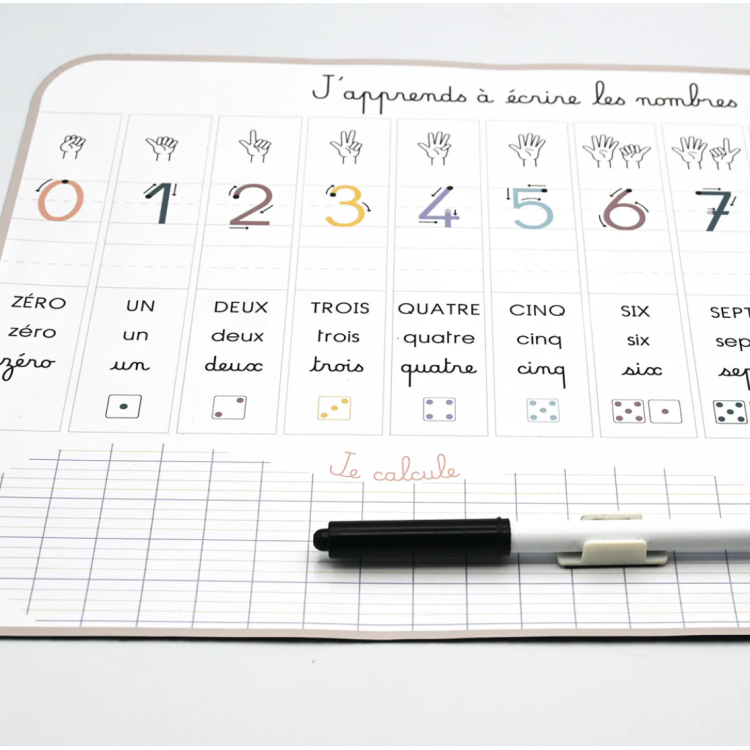 J'apprends à écrire les nombres
0 1 2 3 4 5 6 7
ZÉRO UN DEUX TROIS QUATRE CINQ SIX SEPT
zéro un deux trois quatre cinq six sep
zéro un deux trois quatre cinq six sep
Je calcule